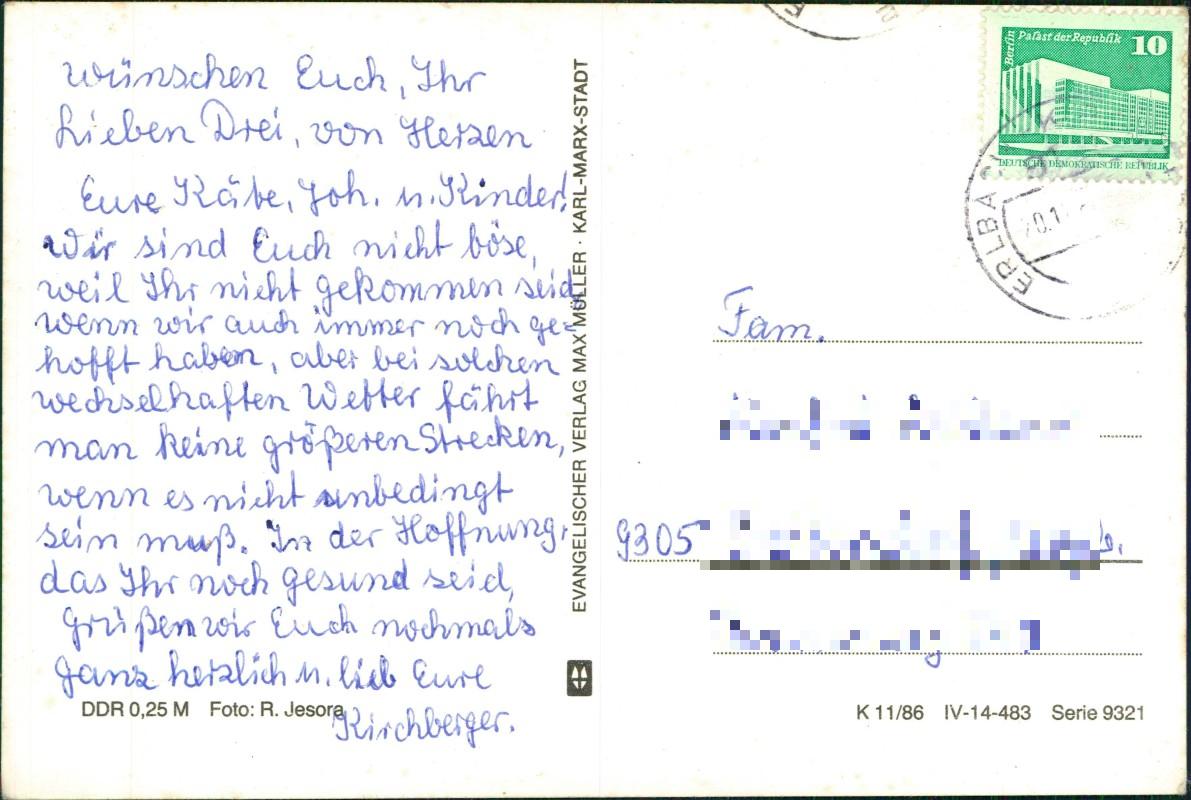 wünschen Euch, Ihr
Lieben Drei, von Herzen
Eure Käte, Joh. u. Kinder!
Wir sind Euch nicht böse,
weil Ihr nicht gekommen seid,
wenn wir auch immer noch ge=
hofft haben, aber bei solchen
wechselhaften Wetter fährt
man keine größeren Strecken,
wenn es nicht unbedingt
sein muß. In der Hoffnung,
das Ihr noch gesund seid,
grüßen wir Euch nochmals
ganz herzlich u. lieb Eure
Kirchberger.
DDR 0,25 M Foto: R. Jesora
EVANGELISCHER VERLAG MAX MÜLLER · KARL-MARX-STADT
Berlin
Palast der Republik
10
DEUTSCHE DEMOKRATISCHE REPUBLIK
ERLBA
Fam.
9305
K 11/86 IV-14-483 Serie 9321